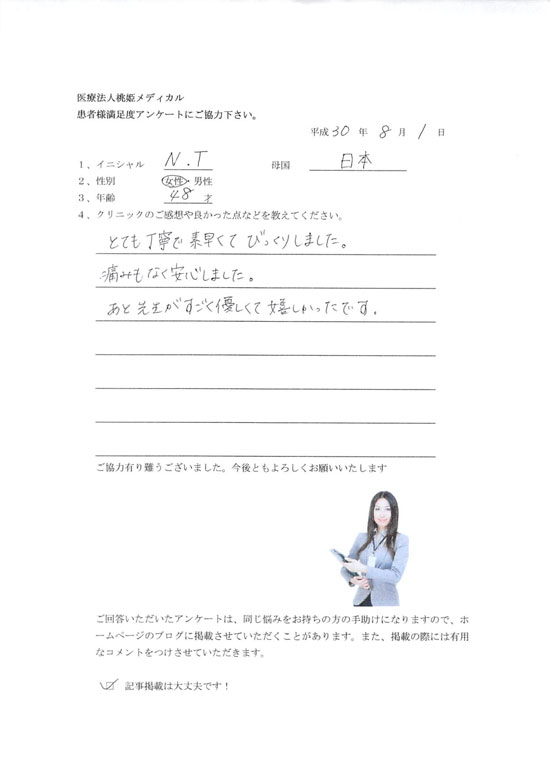 医療法人桃姫メディカル
患者様満足度アンケートにご協力下さい。
平成 30 年 8 月 1 日
1、イニシャル N.T 母国 日本
2、性別 女性・男性
3、年齢 48 才
4、クリニックのご感想や良かった点などを教えてください。
とても丁寧で素早くてびっくりしました。
痛みもなく安心しました。
あと先生がすごく優しくて嬉しかったです.
ご協力有り難うございました。今後ともよろしくお願いいたします
ご回答いただいたアンケートは、同じ悩みをお持ちの方の手助けになりますので、ホ
ームページのブログに掲載させていただくことがあります。また、掲載の際には有用
なコメントをつけさせていただきます。
記事掲載は大丈夫です！